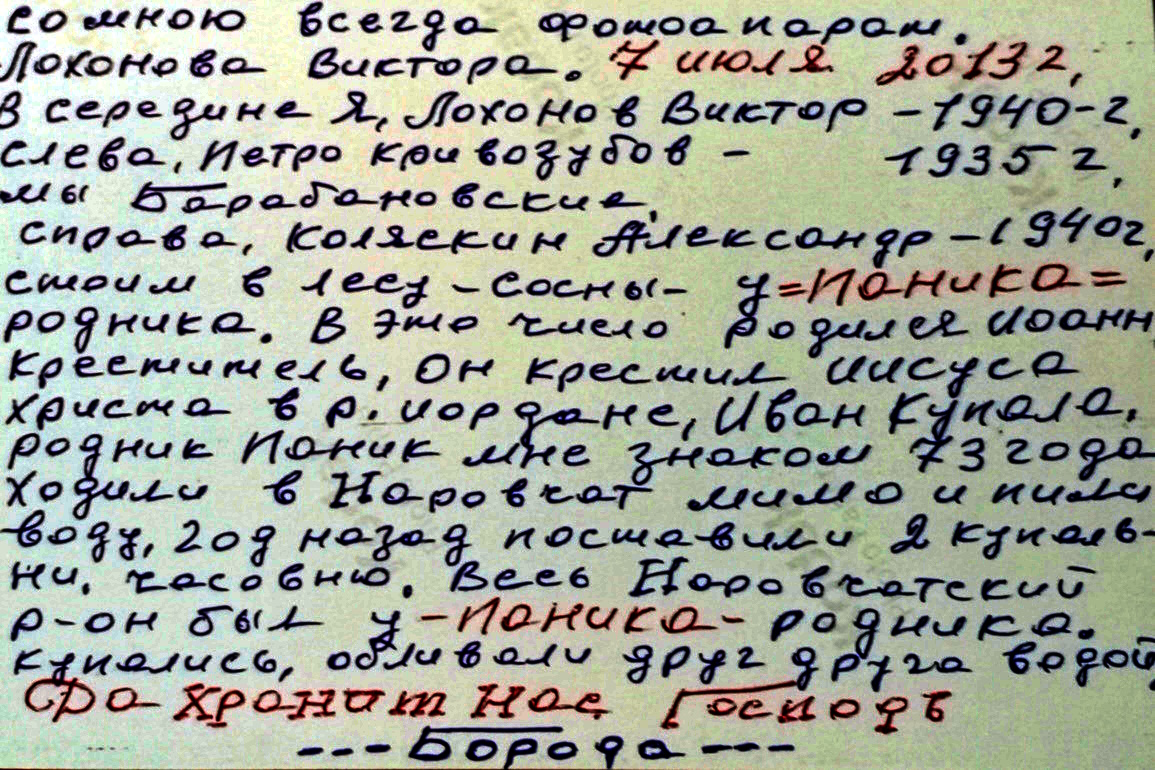 со мною всегда фотоапарат.
Лохонова Виктора. 7 июля 2013 г,
В середине Я, Лохонов Виктор - 1940-г,
слева, Петро Кривозубов - 1935 г,
мы Барабановские,
справа, Коляскин Александр - 1940г,
стоим в лесу - сосны - у =Паника=
родника. В это число родился Иоанн
Креститель, Он крестил Иисуса
Христа в р. Иордане, Иван Купала,
родник Паник мне знаком 73 года
Ходили в Наровчат мимо и пили
воду, год назад поставили 2 купаль-
ни, часовню, Весь Наровчатский
р-он был у -Паника- родника.
купались, обливали друг друга водой
Да хранит нас Господь
--- Борода ---